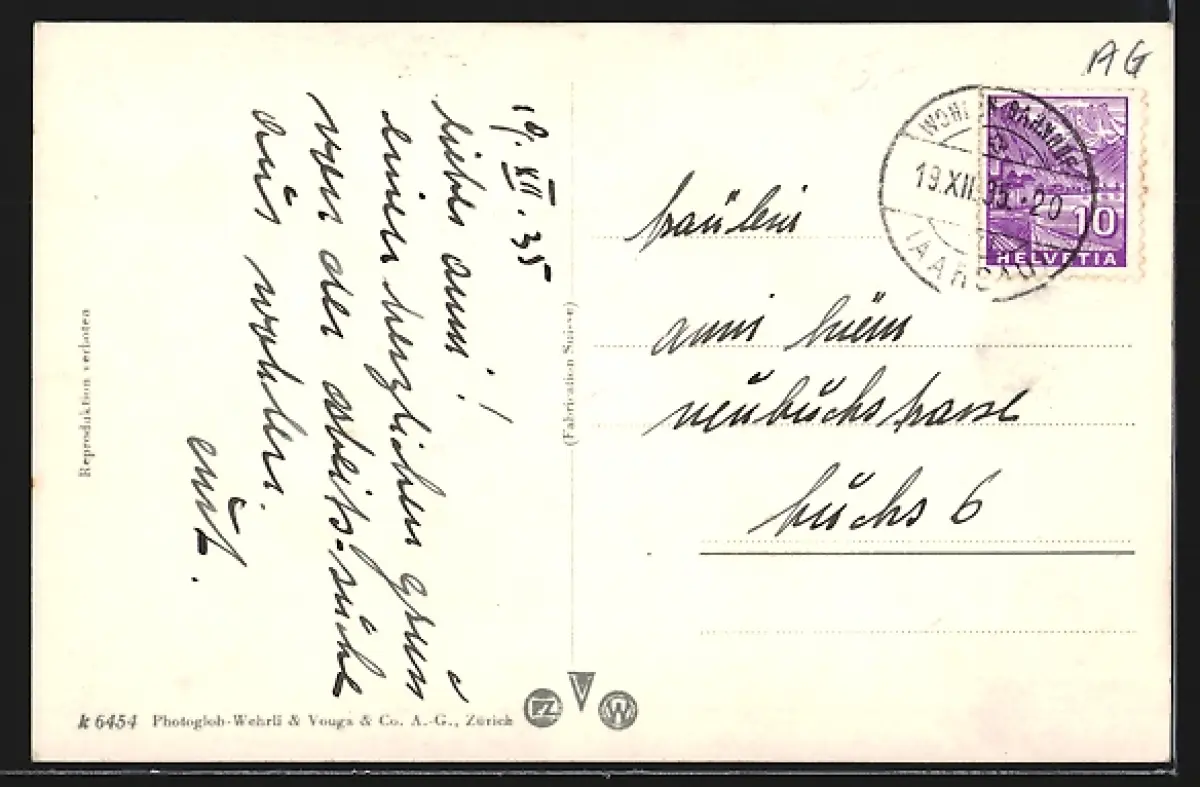 19. XII. 35
liebes anni!
einen herzlichen gruss
von der arbeits-suche
aus wohlen.
AG
WOHLEN BAHNHOF
19.XII.35.-20
(AARGAU)
10
HELVETIA
fräulein
anni
neubuchstrasse
buchs 6
Reproduktion verboten
(Fabrication Suisse)
k 6454 Photoglob-Wehrli & Vouga & Co. A.-G., Zürich
PZ
V
W